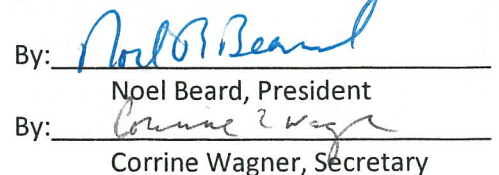 By: Noel B Beard
Noel Beard, President
By: Corrine E Wagn
Corrine Wagner, Secretary